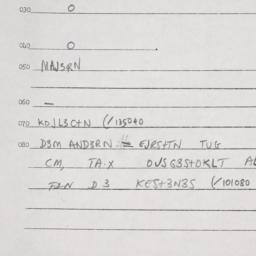 030 O
040 O .
050 MAJ3RN
060 –
070 KDJL3C+N (/135040
080 D3M AND3RN = EJRS+TN TUG
CM, TA.X OJSG3S+OKLT
D3 KES+3N3S (/101080